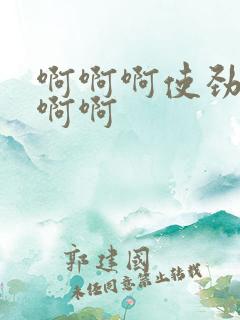 啊啊啊使劲
啊啊
郭建国
未经同意禁止转载